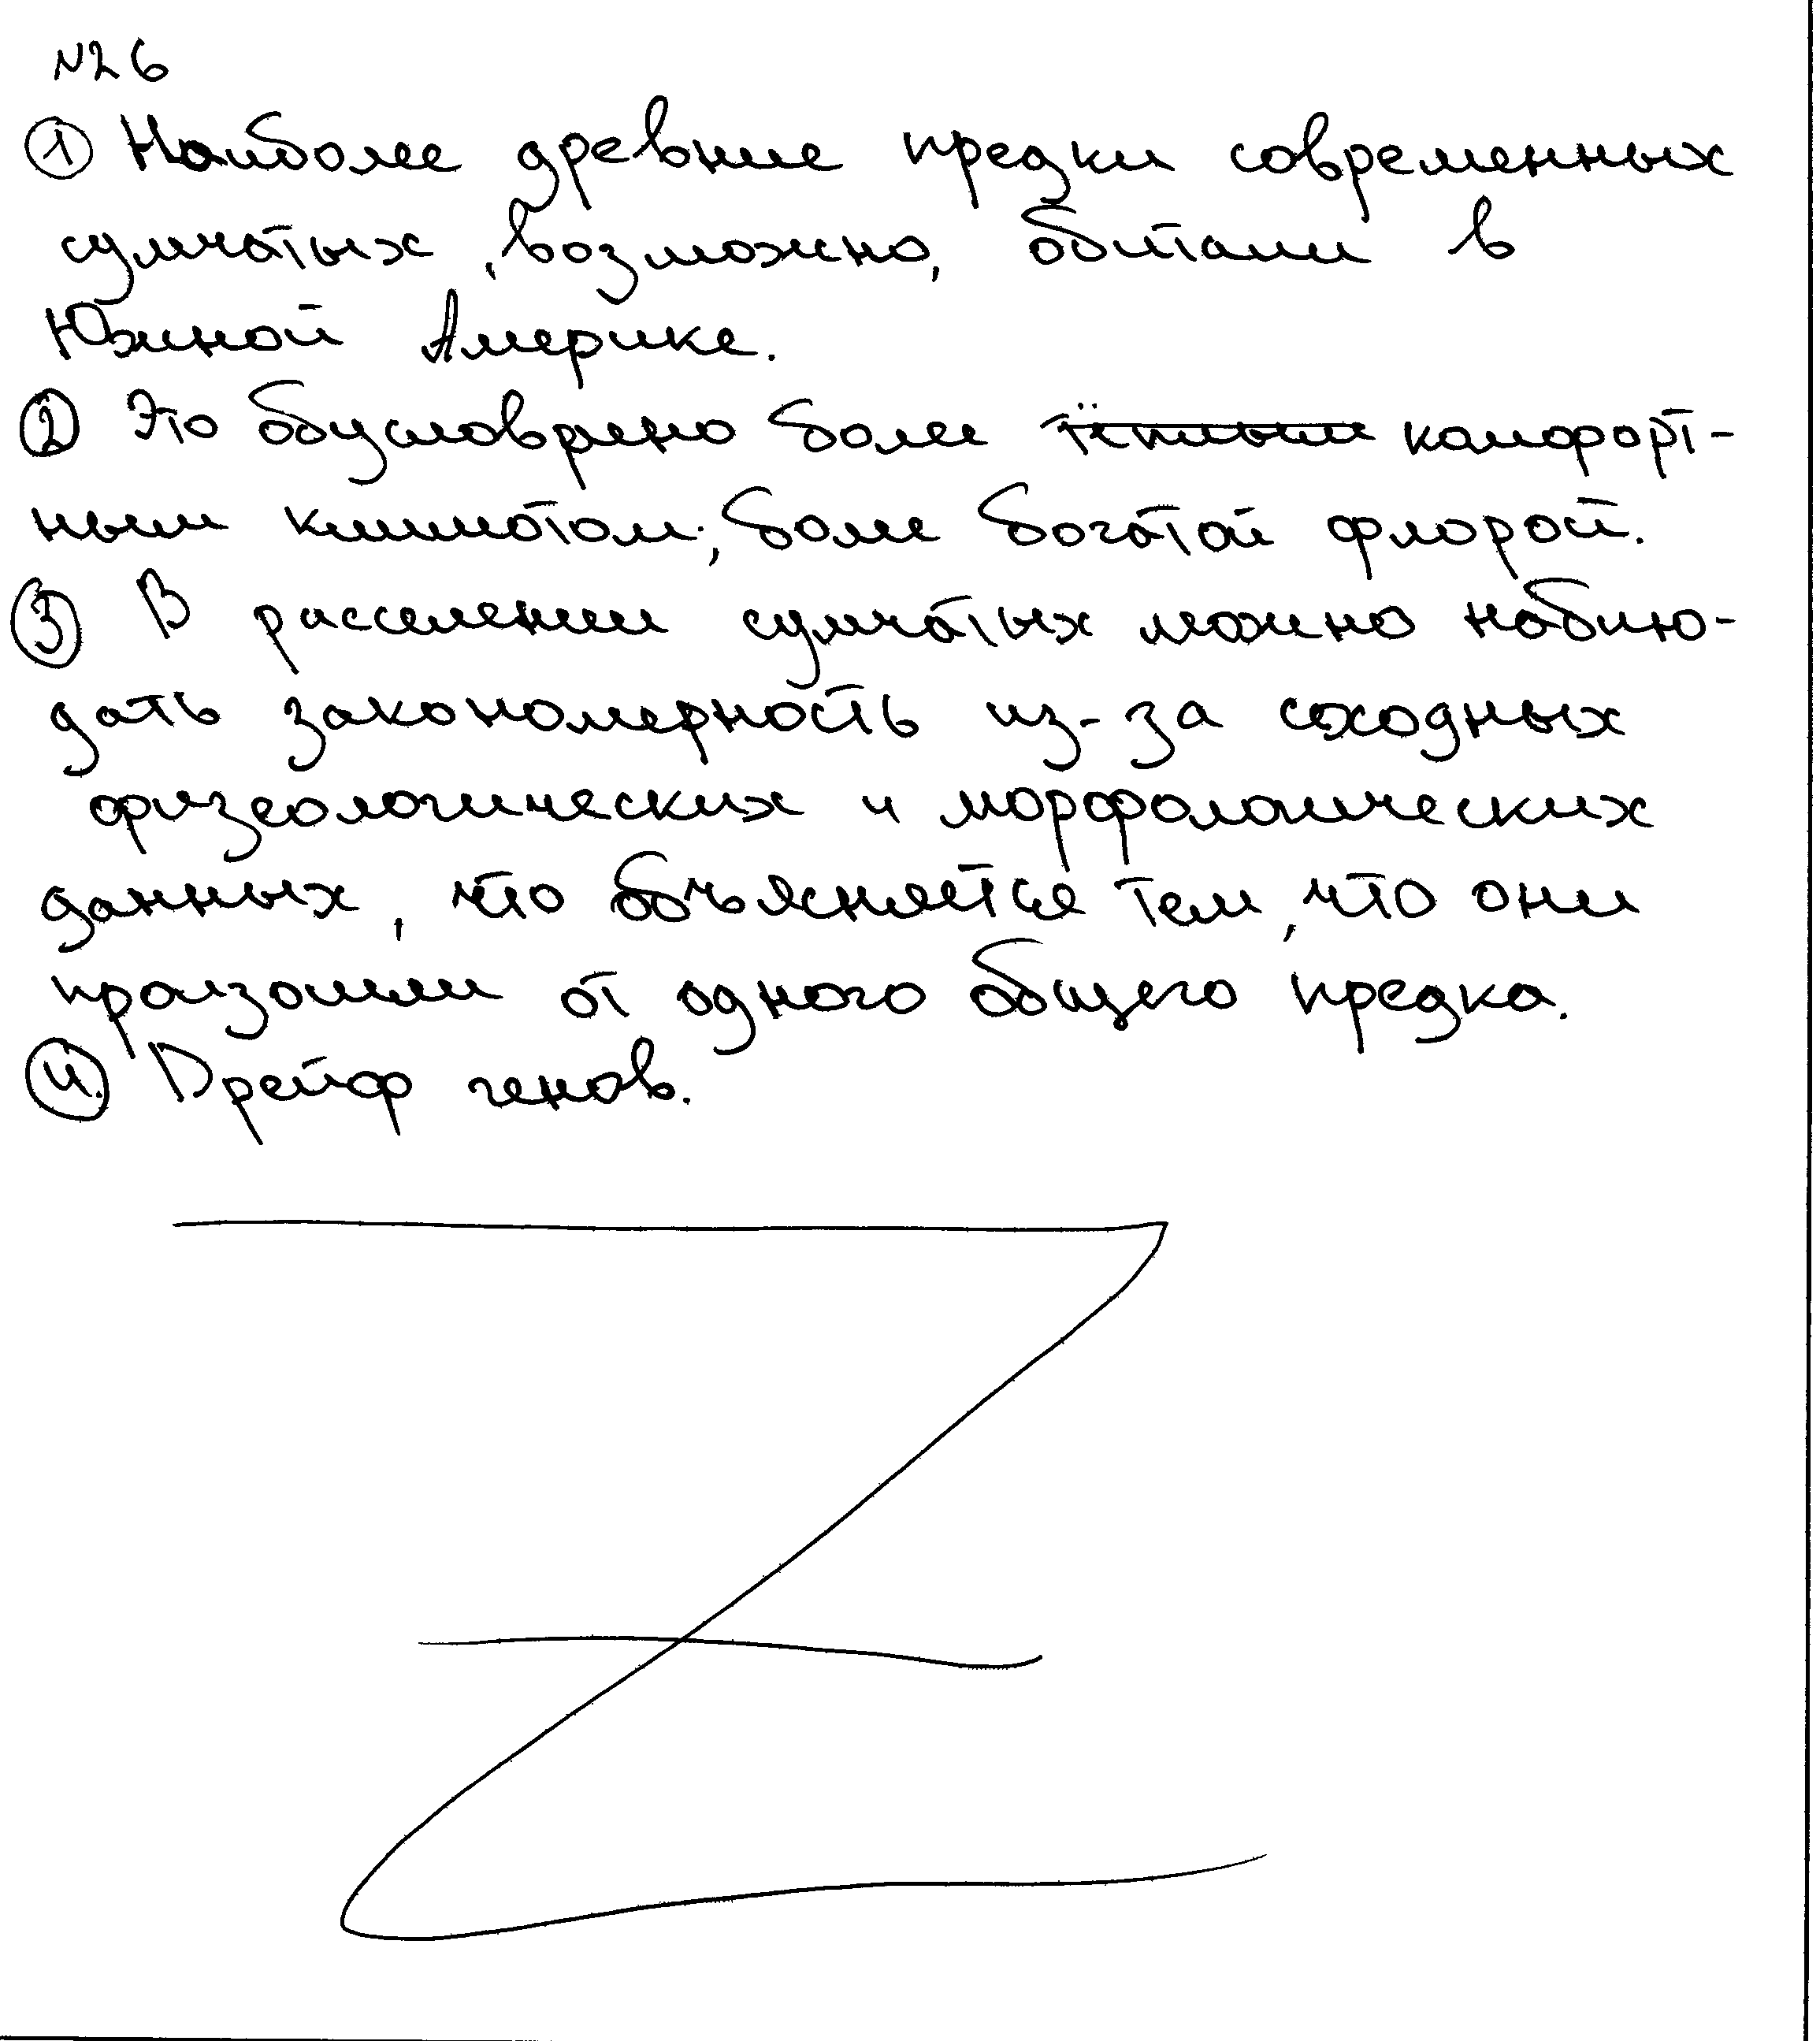 №26
① Наиболее древние предки современных
сумчатых, возможно, обитали в
Южной Америке.
② Это обусловрено более тёплым комфорт-
ным климатом, более богатой флорой.
③ В расселении сумчатых можно наблю-
дать закономерность из-за сходных
физеологических и морфологических
данных, что объясняется тем, что они
произошли от одного общего предка.
④. Дрейф генов.